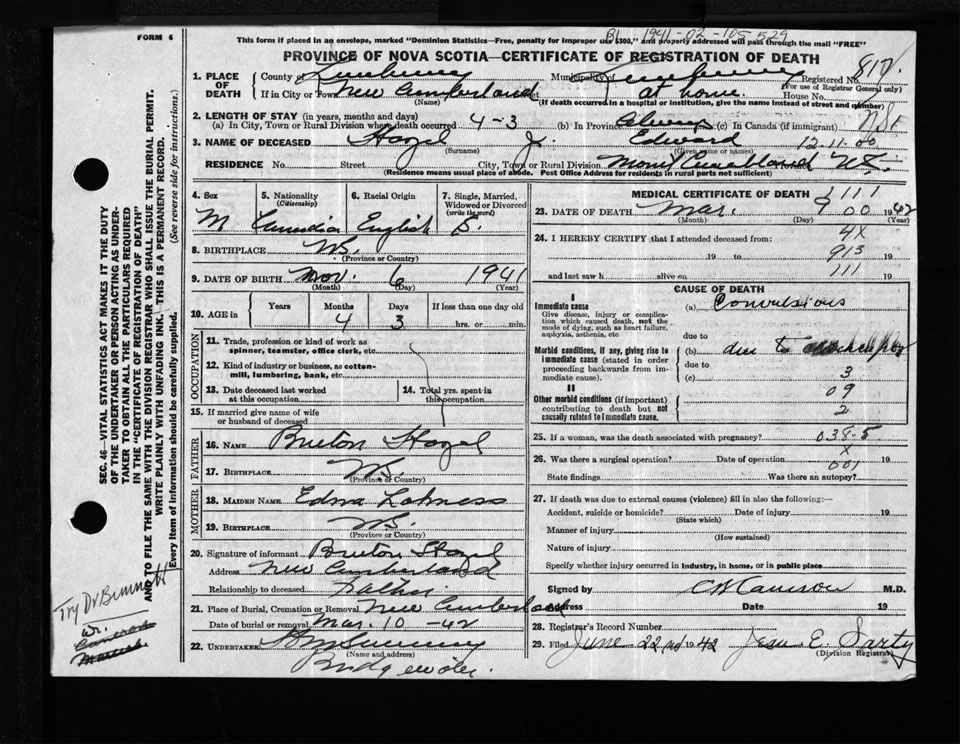 FORM 6
This form if placed in an envelope, marked "Dominion Statistics—Free, penalty for improper use $300," and properly addressed will pass through the mail "FREE"
1941-02-105529
PROVINCE OF NOVA SCOTIA—CERTIFICATE OF REGISTRATION OF DEATH
1. PLACE OF DEATH
County of Lunenburg Municipality of Lunenburg Registered No. 817
(For use of Registrar General only)
If in City or Town New Cumberland Street at home. House No.
(Name) (If death occurred in a hospital or institution, give the name instead of street and number)
2. LENGTH OF STAY (in years, months and days)
(a) In City, Town or Rural Division where death occurred 4-3 (b) In Province Always (c) In Canada (if immigrant)
3. NAME OF DECEASED Edward 12-11-00
(Surname) (Given name or names)
RESIDENCE No. Street City, Town or Rural Division
(Residence means usual place of abode. Post Office Address for residents in rural parts not sufficient)
4. Sex M
5. Nationality (Citizenship) Canadian
6. Racial Origin English
7. Single, Married, Widowed or Divorced (write the word) S.
8. BIRTHPLACE N.S.
(Province or Country)
9. DATE OF BIRTH Nov. 6 1941
(Month) (Day) (Year)
10. AGE in Years Months 4 Days 3 If less than one day old hrs. or min.
OCCUPATION
11. Trade, profession or kind of work as spinner, teamster, office clerk, etc.
12. Kind of industry or business, as cotton-mill, lumbering, bank, etc.
13. Date deceased last worked at this occupation
14. Total yrs. spent in this occupation
15. If married give name of wife or husband of deceased
FATHER
16. NAME
17. BIRTHPLACE N.S.
(Province or Country)
MOTHER
18. MAIDEN NAME Edna Lohness
19. BIRTHPLACE N.S.
(Province or Country)
20. Signature of informant
Address New Cumberland
Relationship to deceased Father
21. Place of Burial, Cremation or Removal New Cumberland
Date of burial or removal Mar. 10 -42
22. UNDERTAKER
(Name and address)
Bridgewater.
MEDICAL CERTIFICATE OF DEATH
1111
23. DATE OF DEATH Mar. 9 00 1942
(Month) (Day) (Year)
24. I HEREBY CERTIFY that I attended deceased from: 4X
19 to 913 19
and last saw h alive on 111 19
CAUSE OF DEATH
I
Immediate cause
Give disease, injury or complication which caused death, not the mode of dying, such as heart failure, asphyxia, asthenia, etc.
(a) Convulsions
due to
Morbid conditions, if any, giving rise to immediate cause (stated in order proceeding backwards from immediate cause).
(b) due to
due to
(c) 3
II
Other morbid conditions (if important) contributing to death but not causally related to immediate cause.
09
2
25. If a woman, was the death associated with pregnancy? 038-5
26. Was there a surgical operation? Date of operation X
001
State findings Was there an autopsy?
27. If death was due to external causes (violence) fill in also the following:—
Accident, suicide or homicide? Date of injury 19
(State which)
Manner of injury
(How sustained)
Nature of injury
Specify whether injury occurred in industry, in home, or in public place
Signed by M.D.
Address Date 19
28. Registrar's Record Number
29. Filed June 22nd 1942 Jean E. Sarty
(Division Registrar)
SEC. 46—VITAL STATISTICS ACT MAKES IT THE DUTY OF THE UNDERTAKER OR PERSON ACTING AS UNDERTAKER TO OBTAIN ALL THE PARTICULARS REQUIRED IN THE "CERTIFICATE OF REGISTRATION OF DEATH" AND TO FILE THE SAME WITH THE DIVISION REGISTRAR WHO SHALL ISSUE THE BURIAL PERMIT.
WRITE PLAINLY WITH UNFADING INK. THIS IS A PERMANENT RECORD.
Every item of information should be carefully supplied. (See reverse side for instructions.)
Try Dr